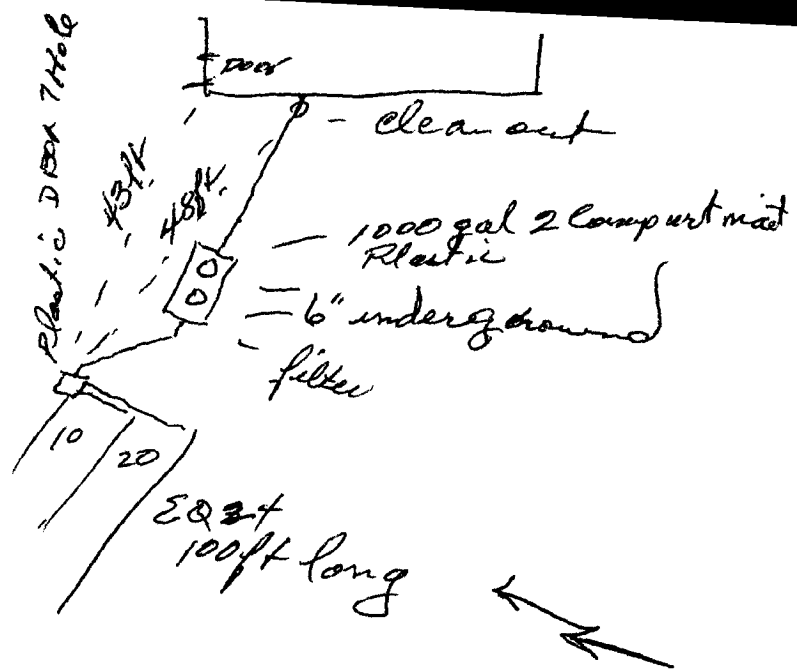 Plastic D Box 7 Hole
Door
clean out
43ft.
48ft.
1000 gal 2 Compartmint
Plastic
6" underground
filter
10
20
EQ 24
100ft long